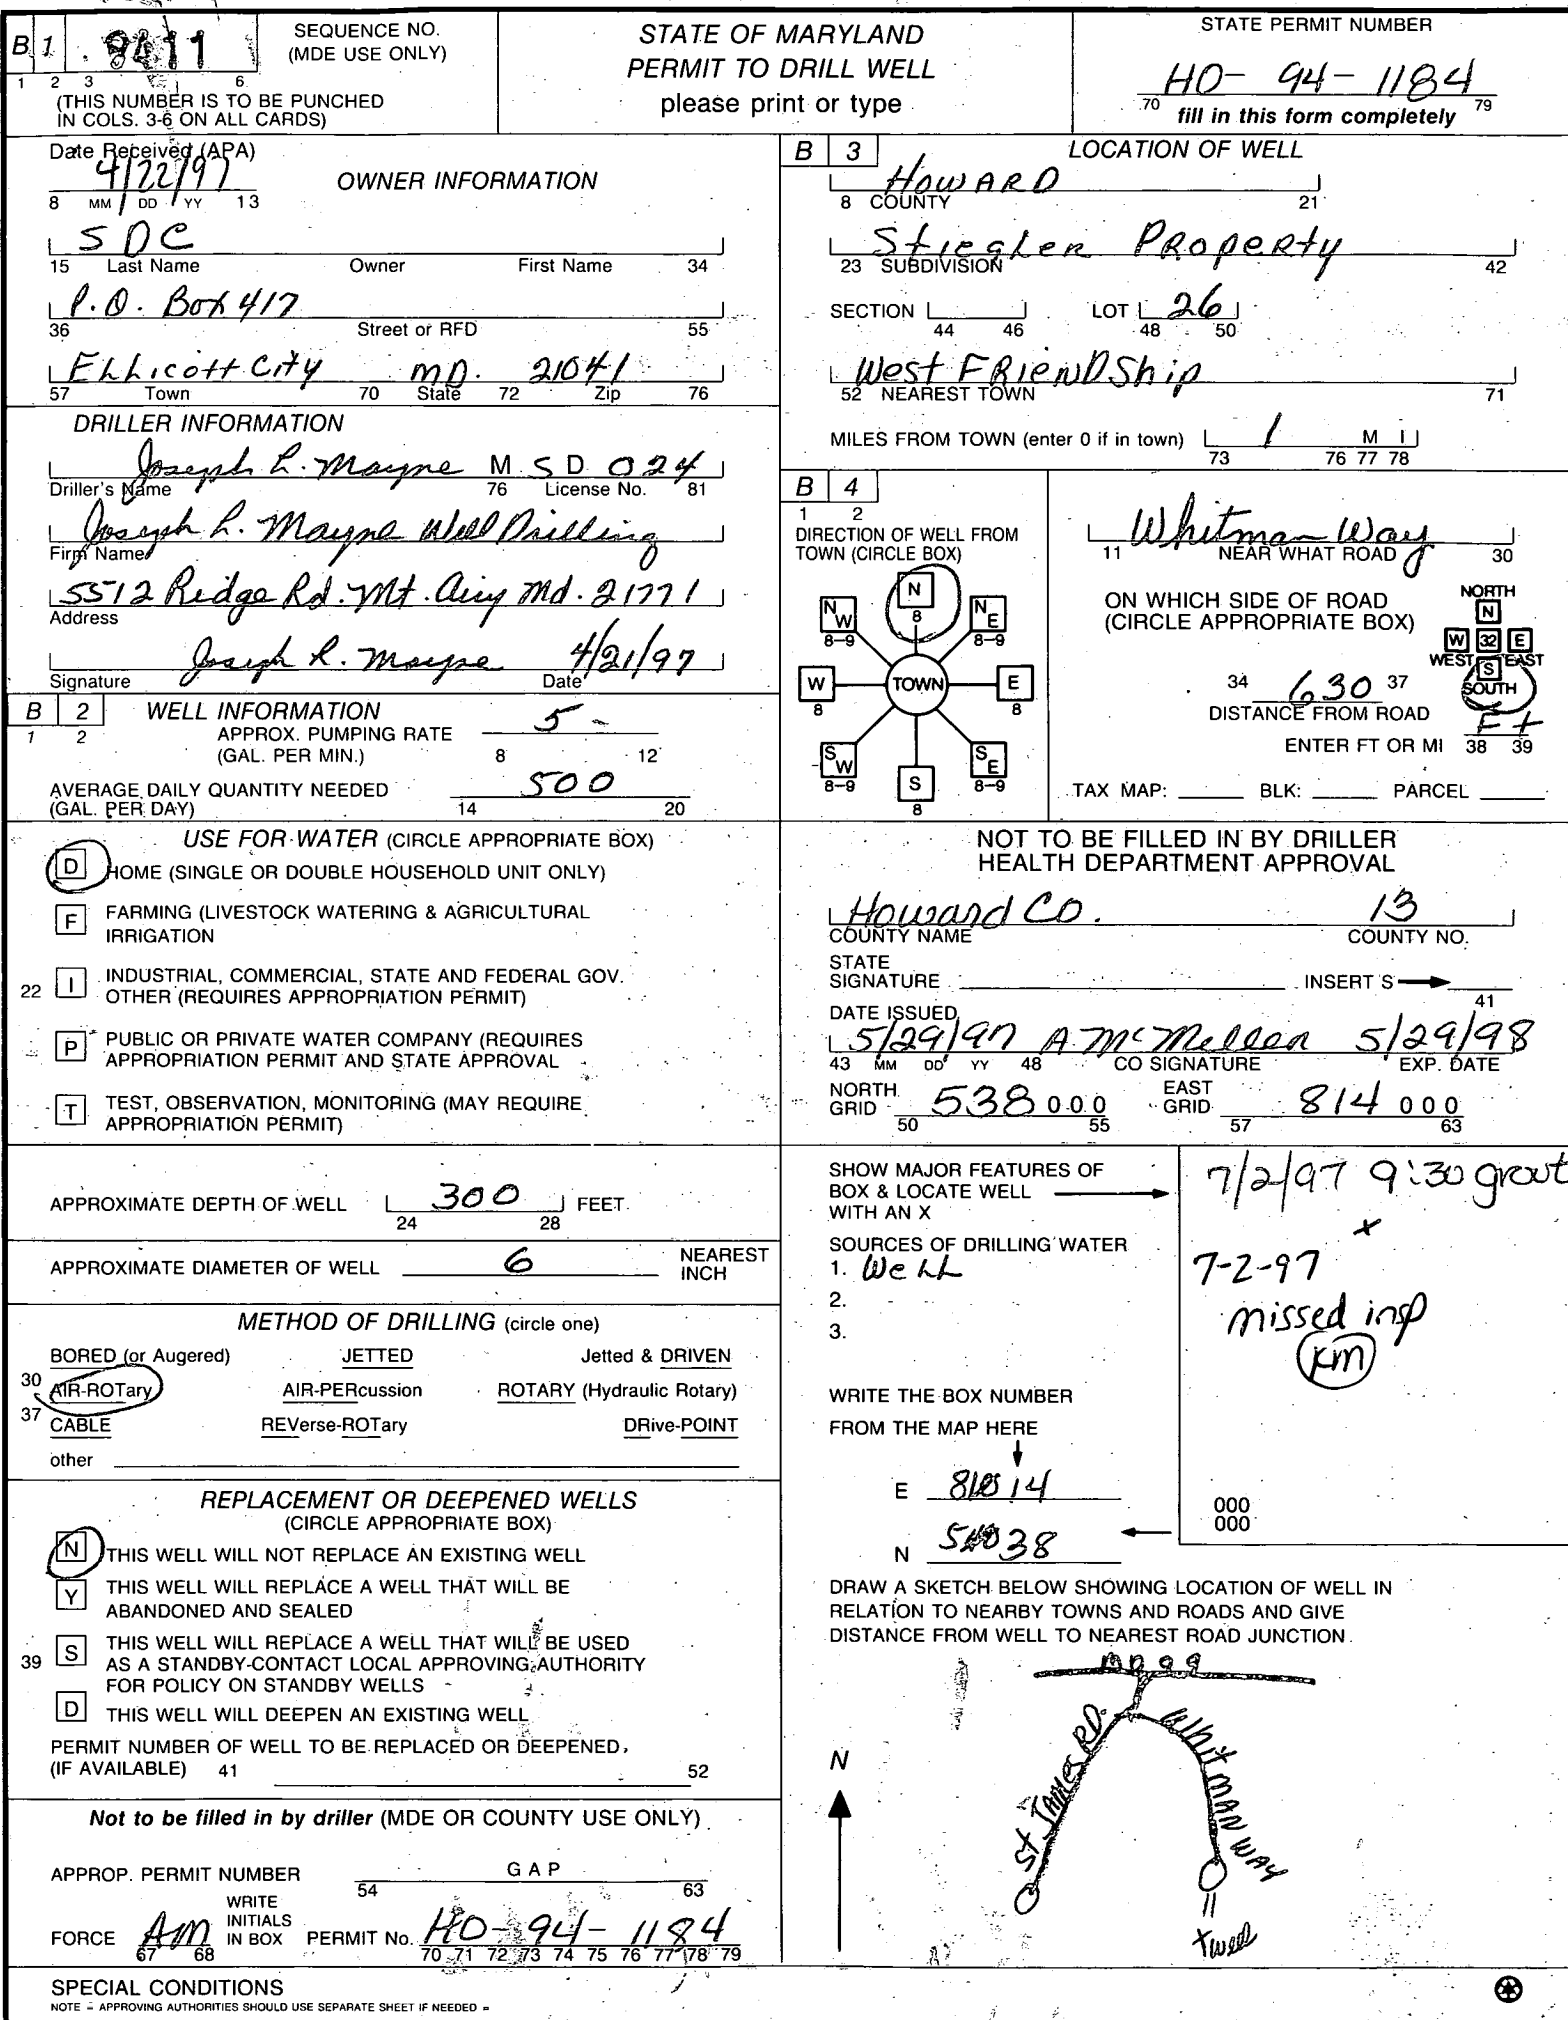 B 1 9411 SEQUENCE NO. (MDE USE ONLY)
1 2 3 6
(THIS NUMBER IS TO BE PUNCHED
IN COLS. 3-6 ON ALL CARDS)
STATE OF MARYLAND
PERMIT TO DRILL WELL
please print or type
STATE PERMIT NUMBER
HO- 94- 1184
70 79
fill in this form completely
Date Received (APA)
4/22/97
8 MM DD YY 13
OWNER INFORMATION
SDC
15 Last Name Owner First Name 34
P.O. Box 417
36 Street or RFD 55
Ellicott City MD. 21041
57 Town 70 State 72 Zip 76
DRILLER INFORMATION
Joseph L. Mayne M S D 024
Driller's Name 76 License No. 81
Joseph L. Mayne Well Drilling
Firm Name
5512 Ridge Rd. Mt. Airy Md. 21771
Address
Joseph L. Mayne 4/21/97
Signature Date
B 2 WELL INFORMATION
1 2
APPROX. PUMPING RATE 5-
(GAL. PER MIN.) 8 12
AVERAGE DAILY QUANTITY NEEDED 500
(GAL. PER DAY) 14 20
USE FOR WATER (CIRCLE APPROPRIATE BOX)
D HOME (SINGLE OR DOUBLE HOUSEHOLD UNIT ONLY)
F FARMING (LIVESTOCK WATERING & AGRICULTURAL
IRRIGATION
22 I INDUSTRIAL, COMMERCIAL, STATE AND FEDERAL GOV.
OTHER (REQUIRES APPROPRIATION PERMIT)
P PUBLIC OR PRIVATE WATER COMPANY (REQUIRES
APPROPRIATION PERMIT AND STATE APPROVAL
T TEST, OBSERVATION, MONITORING (MAY REQUIRE
APPROPRIATION PERMIT)
APPROXIMATE DEPTH OF WELL 300 FEET
24 28
APPROXIMATE DIAMETER OF WELL 6 NEAREST
INCH
METHOD OF DRILLING (circle one)
BORED (or Augered) JETTED Jetted & DRIVEN
30 AIR-ROTary AIR-PERcussion ROTARY (Hydraulic Rotary)
37 CABLE REVerse-ROTary DRive-POINT
other
REPLACEMENT OR DEEPENED WELLS
(CIRCLE APPROPRIATE BOX)
N THIS WELL WILL NOT REPLACE AN EXISTING WELL
Y THIS WELL WILL REPLACE A WELL THAT WILL BE
ABANDONED AND SEALED
39 S THIS WELL WILL REPLACE A WELL THAT WILL BE USED
AS A STANDBY-CONTACT LOCAL APPROVING AUTHORITY
FOR POLICY ON STANDBY WELLS
D THIS WELL WILL DEEPEN AN EXISTING WELL
PERMIT NUMBER OF WELL TO BE REPLACED OR DEEPENED
(IF AVAILABLE) 41 52
Not to be filled in by driller (MDE OR COUNTY USE ONLY)
APPROP. PERMIT NUMBER G A P
54 63
FORCE AM WRITE INITIALS IN BOX PERMIT No. HO-94-1184
67 68 70 71 72 73 74 75 76 77 78 79
SPECIAL CONDITIONS
NOTE - APPROVING AUTHORITIES SHOULD USE SEPARATE SHEET IF NEEDED =
B 3 LOCATION OF WELL
HOWARD
8 COUNTY 21
Stiegler Property
23 SUBDIVISION 42
SECTION LOT 26
44 46 48 50
West FRIENDShip
52 NEAREST TOWN 71
MILES FROM TOWN (enter 0 if in town) 1 M I
73 76 77 78
B 4
1 2
DIRECTION OF WELL FROM
TOWN (CIRCLE BOX)
N 8
NW 8-9 NE 8-9
W 8 TOWN E 8
SW 8-9 SE 8-9
S 8
Whitman Way
11 NEAR WHAT ROAD 30
ON WHICH SIDE OF ROAD
(CIRCLE APPROPRIATE BOX)
NORTH
N
W 32 E
WEST S EAST
SOUTH
34 630 37
DISTANCE FROM ROAD Ft
ENTER FT OR MI 38 39
TAX MAP: BLK: PARCEL
NOT TO BE FILLED IN BY DRILLER
HEALTH DEPARTMENT APPROVAL
Howard Co. 13
COUNTY NAME COUNTY NO.
STATE
SIGNATURE INSERT S
41
DATE ISSUED
5/29/97 A. McMillen 5/29/98
43 MM DD YY 48 CO SIGNATURE EXP. DATE
NORTH GRID 538 0 0 0 EAST GRID 814 0 0 0
50 55 57 63
SHOW MAJOR FEATURES OF
BOX & LOCATE WELL
WITH AN X
7/2/97 9:30 grout
x
7-2-97
missed insp
KM
SOURCES OF DRILLING WATER
1. Well
2.
3.
WRITE THE BOX NUMBER
FROM THE MAP HERE
E 814
N 538
000
000
DRAW A SKETCH BELOW SHOWING LOCATION OF WELL IN
RELATION TO NEARBY TOWNS AND ROADS AND GIVE
DISTANCE FROM WELL TO NEAREST ROAD JUNCTION
MD 99
St JAMES RD.
WhitMAN WAY
N
x well